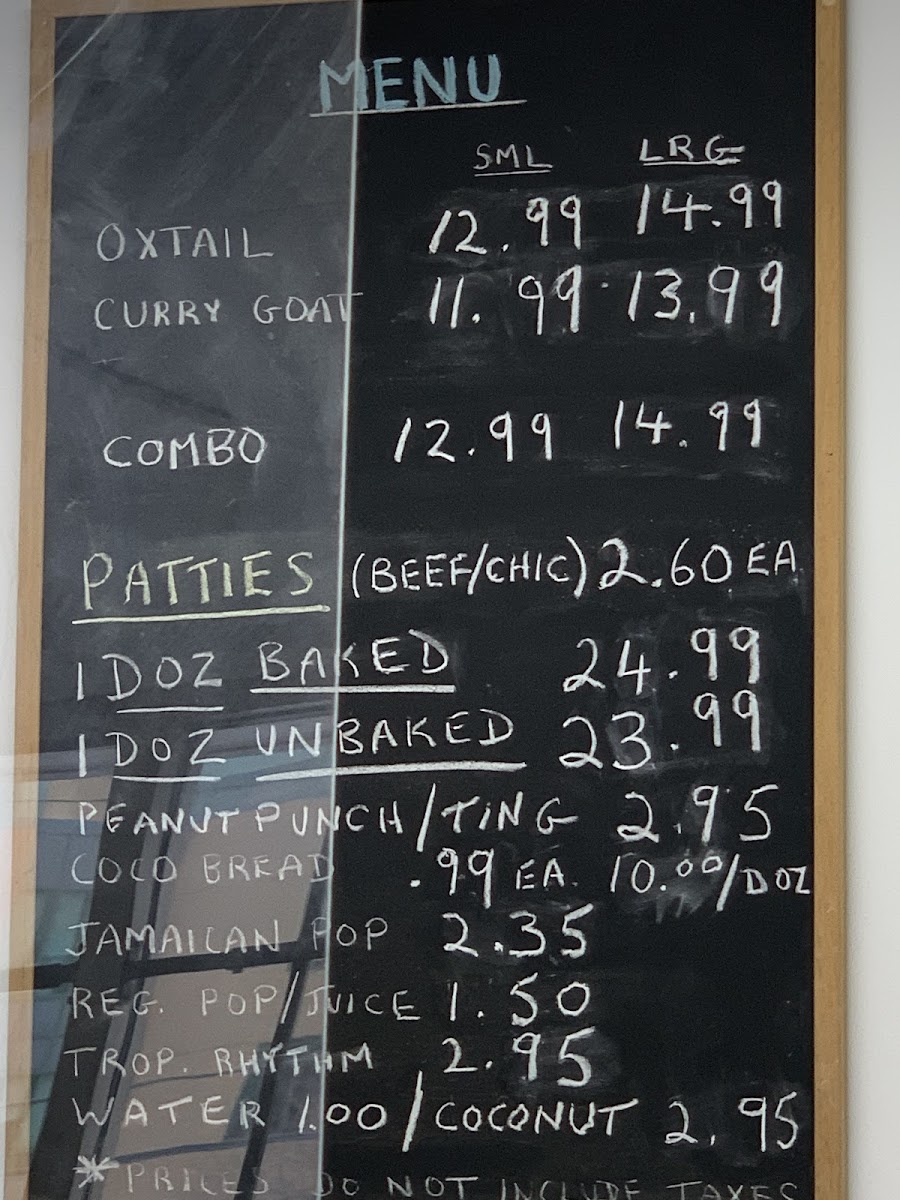 MENU
SML LRG
OXTAIL 12.99 14.99
CURRY GOAT 11.99 13.99
COMBO 12.99 14.99
PATTIES (BEEF/CHIC) 2.60 EA
1 DOZ BAKED 24.99
1 DOZ UNBAKED 23.99
PEANUT PUNCH/TING 2.95
COCO BREAD .99 EA. 10.00/DOZ
JAMAICAN POP 2.35
REG. POP/JUICE 1.50
TROP. RHYTHM 2.95
WATER 1.00/COCONUT 2.95
* PRICES DO NOT INCLUDE TAXES